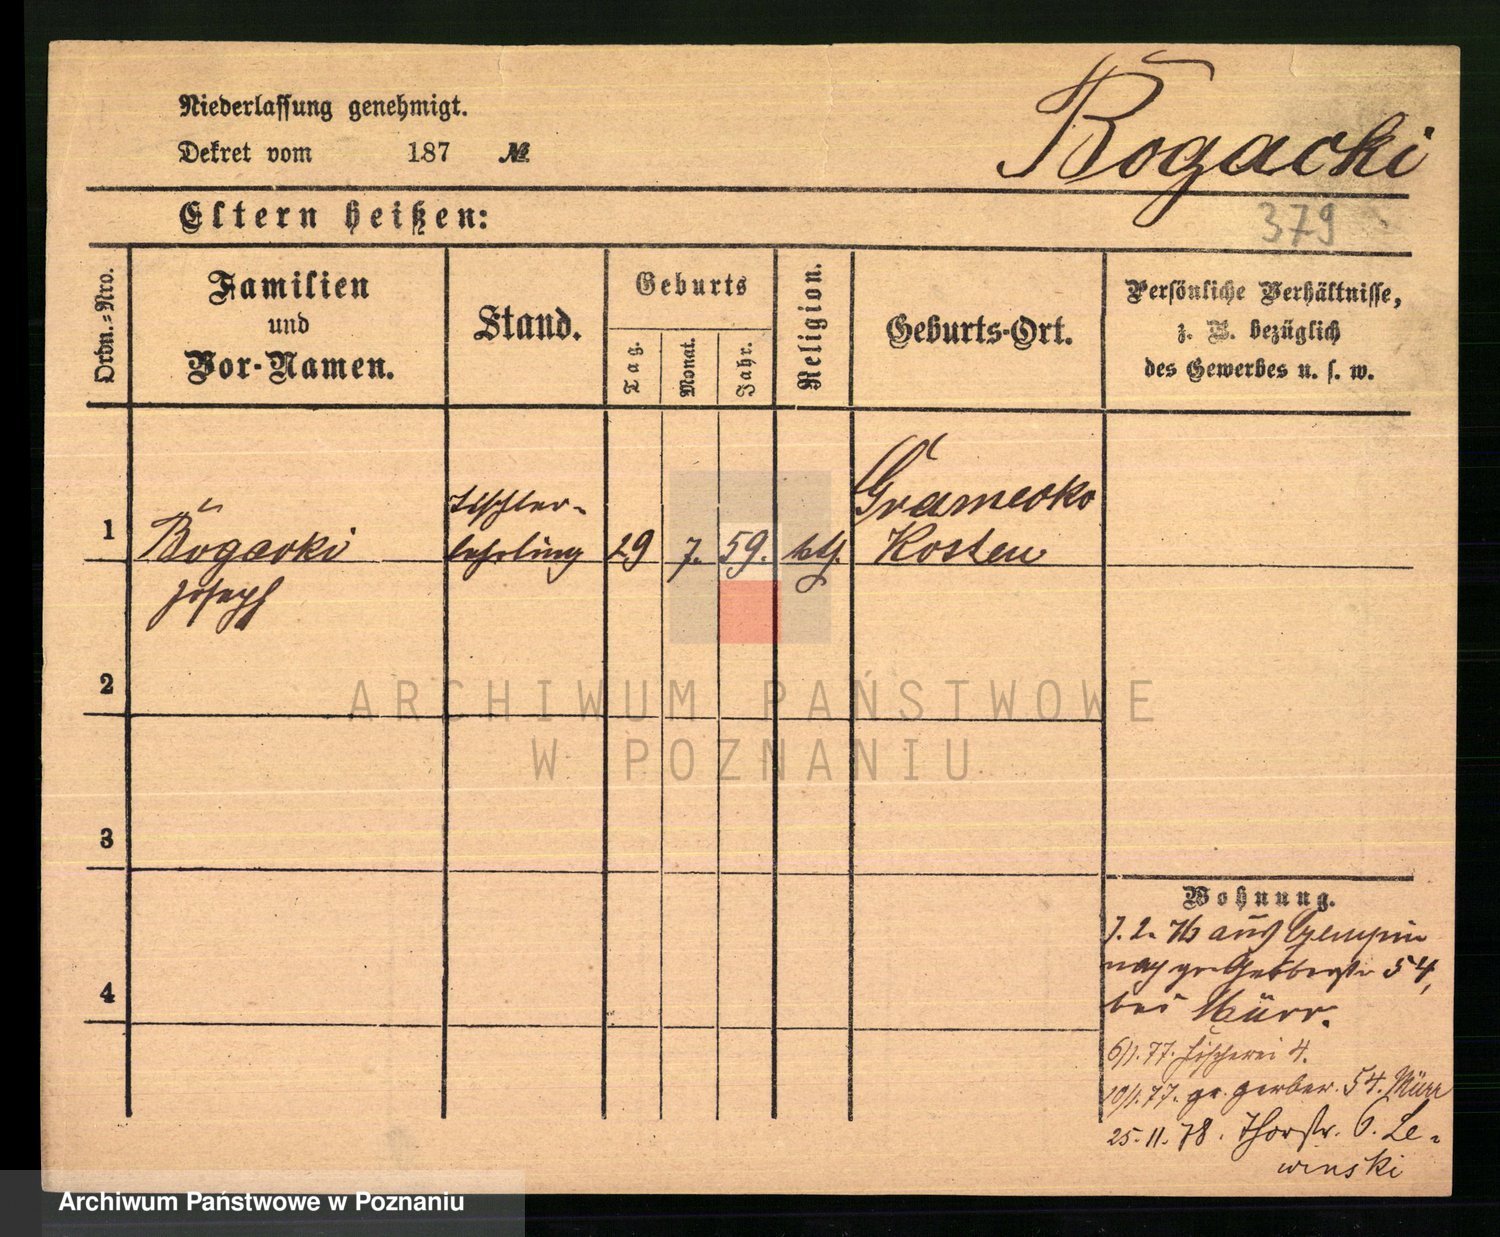 Niederlassung genehmigt.
Dekret vom 187 №
Bogacki
Eltern heißen:
379
Ordn.-Nro.
Familien
und
Vor-Namen.
Stand.
Geburts
Tag.
Monat.
Jahr.
Religion.
Geburts-Ort.
Persönliche Verhältnisse,
z. B. bezüglich
des Gewerbes u. s. w.
1
Bogacki
Joseph
Tischler-
lehrling
29
7.
59.
kth.
Kosten
2
3
4
Wohnung.
7. 2. 76 aus
nach gr Gerberstr 54,
bei Mürr.
6/1. 77. Fischerei 4.
10/1. 77. gr. gerber. 54. Mürr
25. 11. 78. Thorstr. 6. Le-
winski
ARCHIWUM PAŃSTWOWE
W POZNANIU
Archiwum Państwowe w Poznaniu